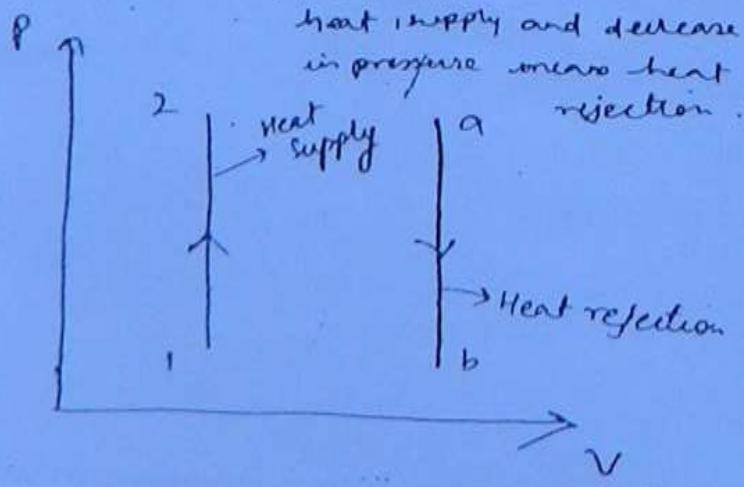 heat supply and decrease
in pressure means heat
rejection.
P
2
Heat
supply
a
Heat rejection
1
b
V